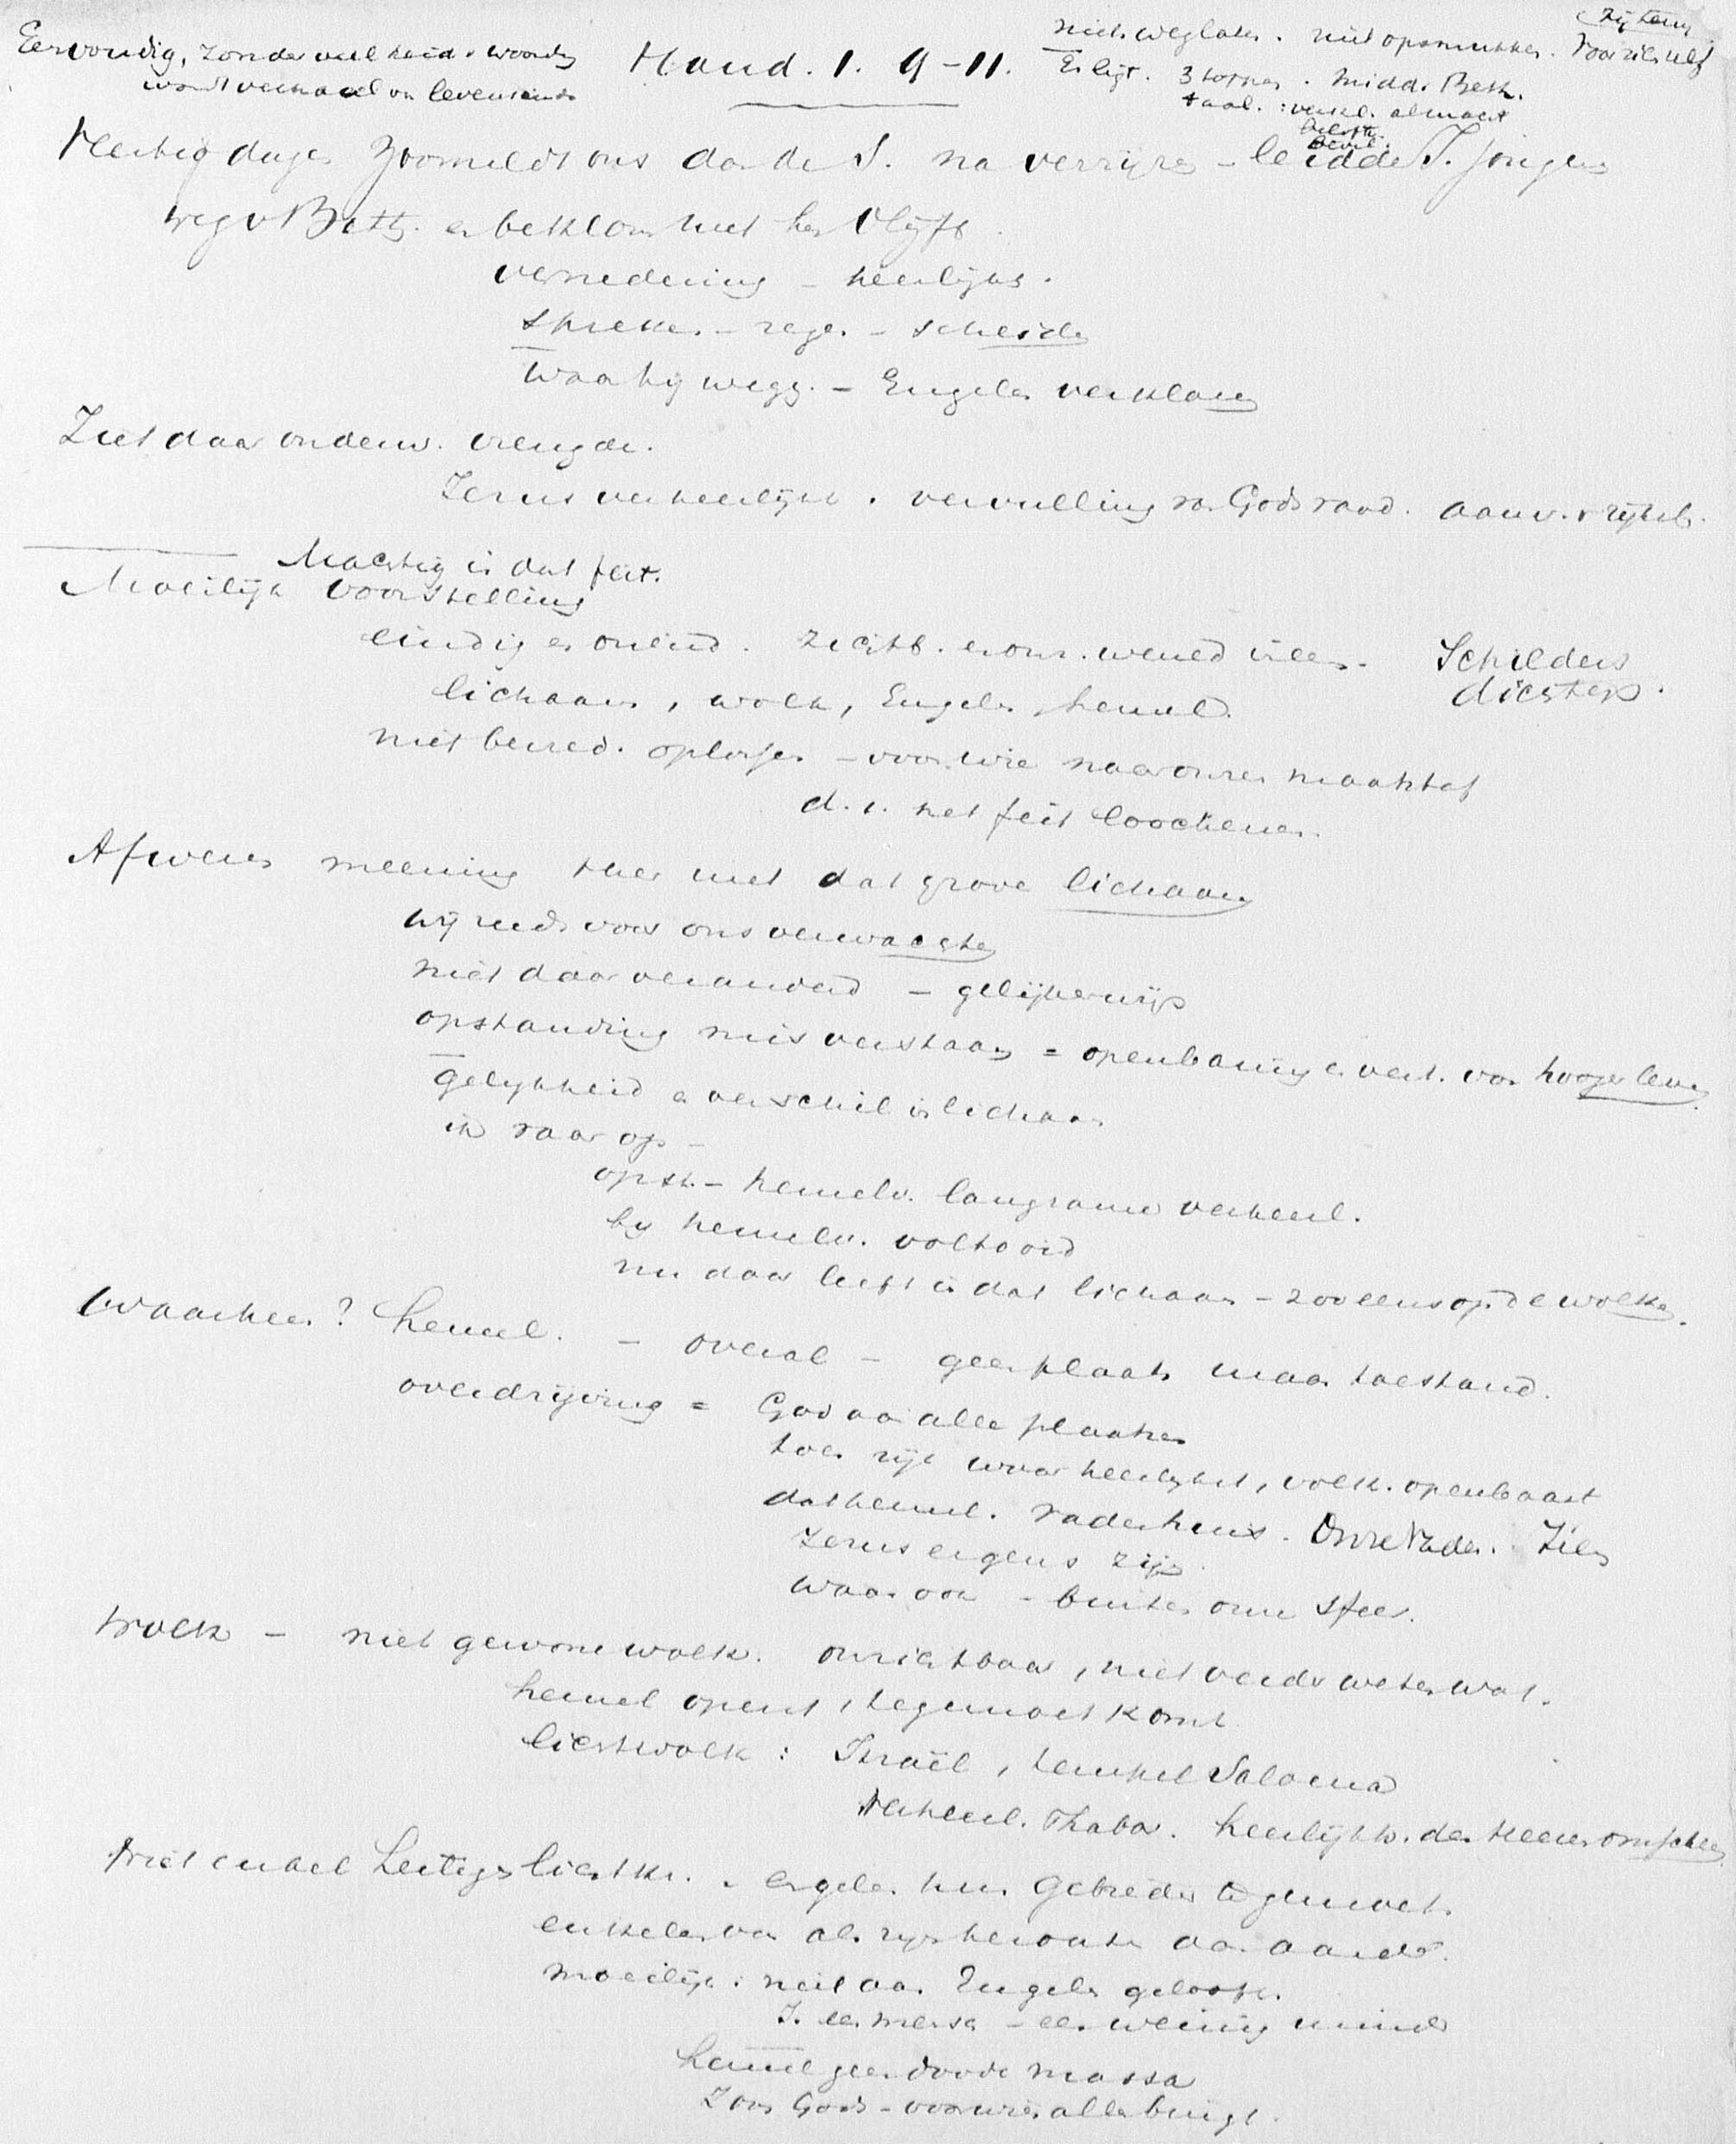 Eenvoudig, zonder veel
wordt verhaal van levenseinde
Hand. 1. 9-11.
niet weglaten. niet opsmukken. voor zich zelf
Er ligt. 3 Midd. Beth.
taal. : verkl. almacht
Veertig dagen zoo meldt ons de S. na - leidde J. jongers
weg v Beth. en beklom met hen Olijfb.
vernedering - heerlijkh.
spreken - zegen - scheiden
waar hij wegg. - Engelen verklaren
Ziet daar onderw. vreugde.
Jezus verheerlijkt. vervulling van Gods raad. aanv. v rijksh.
Machtig is dat feit.
Moeilijk voorstelling
eindig en oneind. zichtb. en onz. wereld ineen.
Schilders
dichters.
lichaam, wolk, Engelen hemel.
niet bevred. oplossen - voor wie naar onzen maatstaf
d. i. het feit loochenen.
Afwerp meening met dat grove lichaam
wij reeds voor ons verwachten
niet daar veranderd - gelijkerwijs
opstanding misverstaan = openbaring en vert. van hooger leven
gelijkheid en verschil in lichaam
ik vaar op -
opst. - hemelv. langzame verheerl.
bij hemelv. voltooid
nu daar leeft in dat lichaam - zoo eens op de wolken.
Waarheen? hemel. - overal - geen plaats maar toestand.
overdrijving = God aan alle plaatsen
toch zijn waar heerlijkheid, volk. openbaart
dat hemel. Vaderhuis. Onze Vader. Zien
Jezus ergens zijn
waar ook - buiten onze sfeer.
Wolk - niet gewone wolk. onzichtbaar, niet verder weten wat.
hemel opent, tegemoet komt
lichtwolk : Israël, tempel Salomo
Verheerl. Thabor. heerlijkh. des Heeren omscheen
Niet enkel lichtkr. - engelen hun Gebieder te gemoet.
enkelen van als aan aarde.
moeilijk : niet aan Engelen gelooft.
J. een mensch - een weinig minder
hemel geen doode massa
Zoon Gods - voor wien alles buigt.